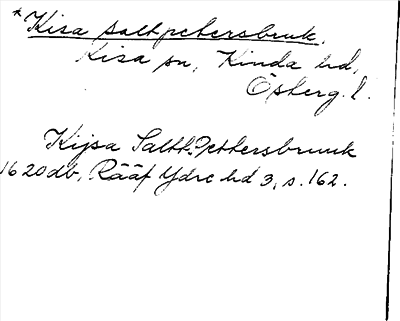 *Kisa saltpetersbruk.
Kisa sn, Kinda hd,
Österg. l.
Kijsa Saltt:Pettersbruuk
1620 db, Rääf Ydre hd 3, s. 162.